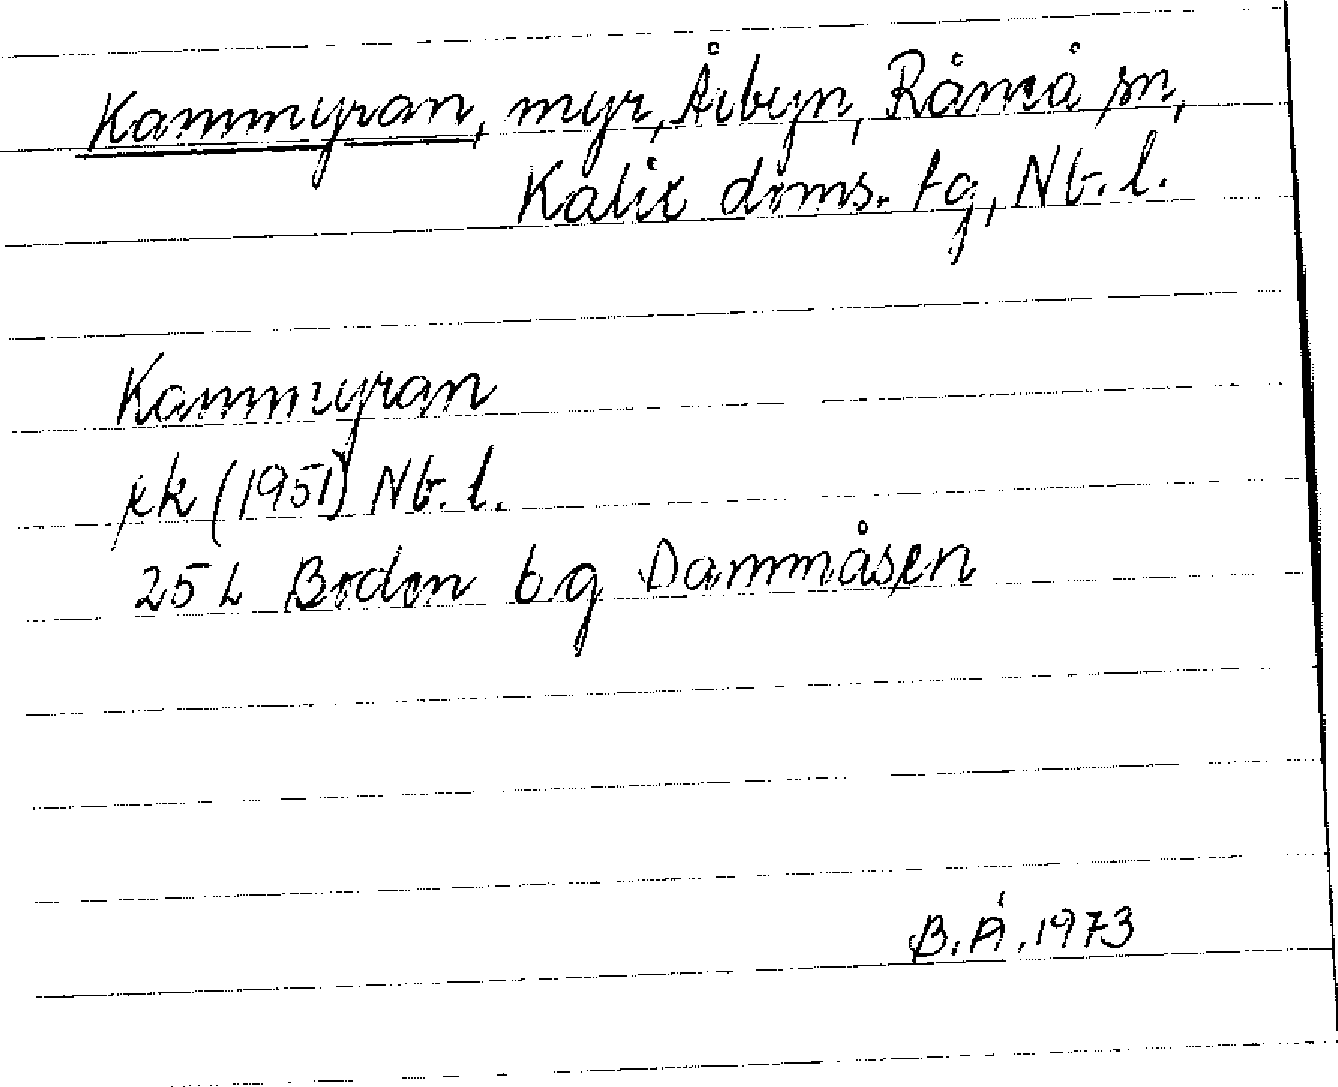 Kammyran, myr, Åibyn, Råneå sn,
Kalix doms. tg, Nb. l.
Kammyran
xk (1951) Nb. l.
25 L Boden 6 g Dammåsen
B.Å. 1973